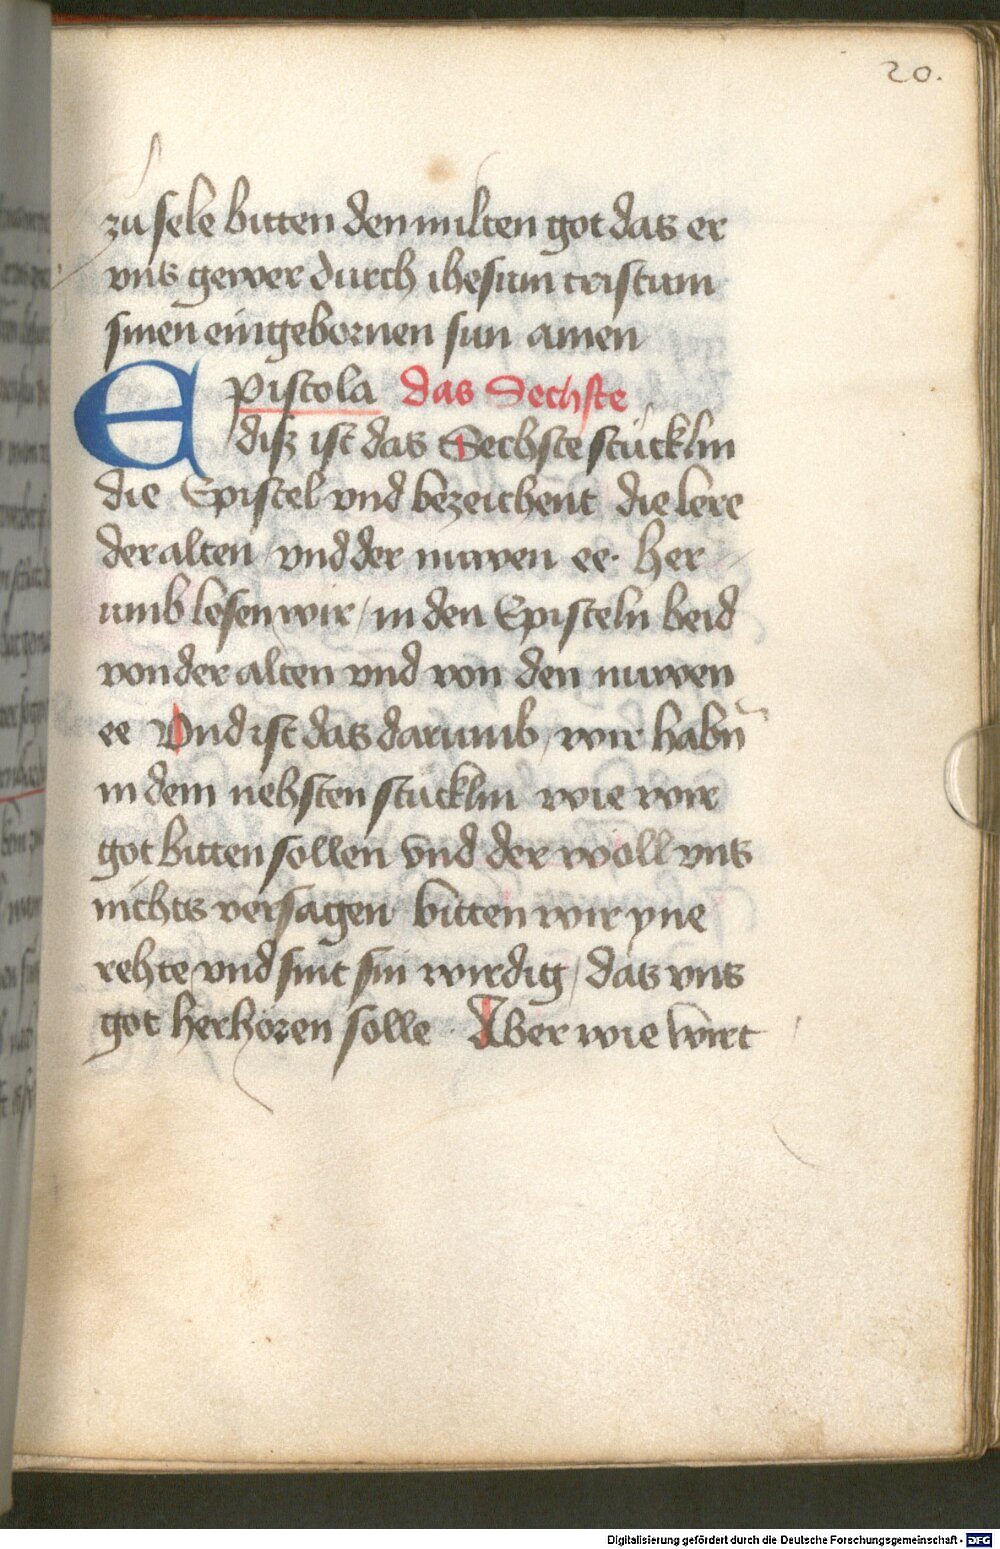 20.
zu sele bitten den milten got das er
vns gewer durch ihesum cristum
sinen eingebornen sun amen
Epistola das Sechste
disz ist das Sechste stücklin
die Epistel vnd bezeichent die lere
der alten / vnd der nuwen ee. Her
umb lesen wir / in den Episteln beid
von der alten vnd von den nuwen
ee Vnd ist das darumb / wir habn̄
in dem nehsten stücklin wie wir
got bitten sollen vnd der wöll vns
nichts versagen bitten wir yne
rehte / vnd sint sin wirdig / das vns
got herhoren solle Aber wie wirt
Digitalisierung gefördert durch die Deutsche Forschungsgemeinschaft - DFG